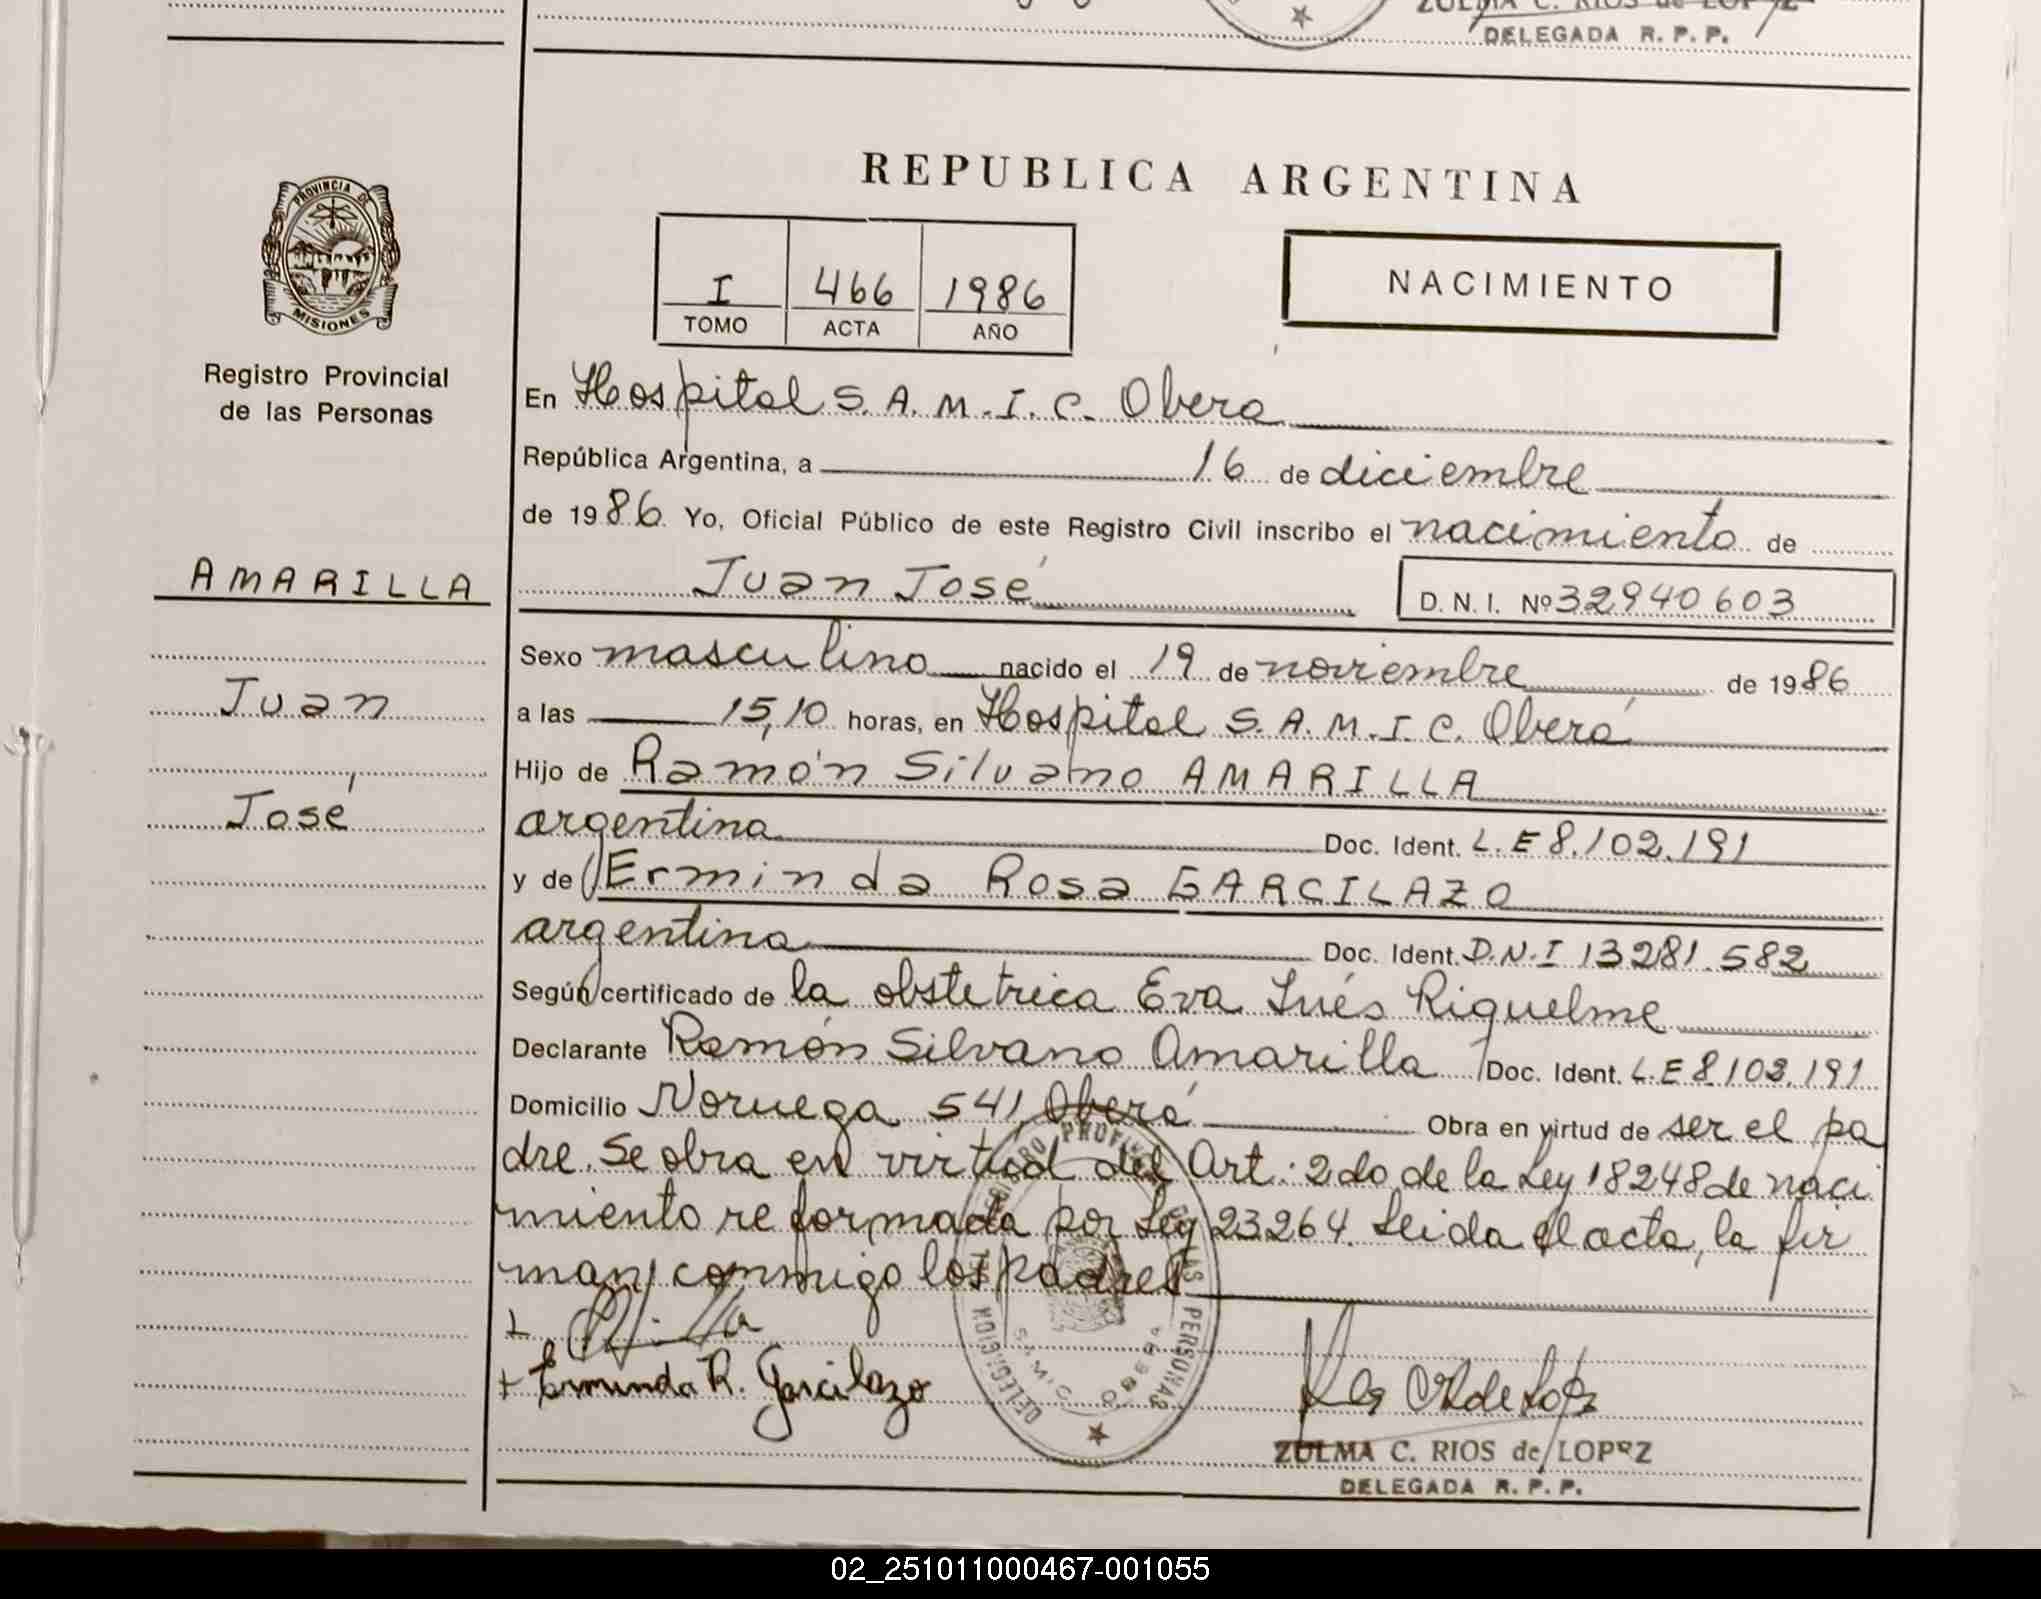 ZULMA C. RIOS de LOPEZ
DELEGADA R. P. P.
PROVINCIA DE
MISIONES
Registro Provincial
de las Personas
AMARILLA
Juan
José
REPUBLICA ARGENTINA
I 466 1986
TOMO ACTA AÑO
NACIMIENTO
En Hospital S. A. M. I. C. Oberá
República Argentina, a 16 de diciembre
de 1986. Yo, Oficial Público de este Registro Civil inscribo el nacimiento de
Juan José D. N. I. Nº 32940603
Sexo masculino nacido el 19 de noviembre de 1986
a las 15,10 horas, en Hospital S. A. M. I. C. Oberá
Hijo de Ramón Silvano AMARILLA
argentina Doc. Ident. L. E 8.102.191
y de Erminda Rosa GARCILAZO
argentina Doc. Ident. D.N.I 13281.582
Según certificado de la obstetrica Eva Inés Riquelme
Declarante Ramón Silvano Amarilla Doc. Ident. L.E 8.102.191
Domicilio Noruega 541, Oberá Obra en virtud de ser el pa
dre. Se obra en virtud del Art. 2do de la Ley 18248 de naci
miento reformada por Ley 23264. Leida el acta, la fir
man conmigo los padres
+ Erminda R. Garcilazo
ZULMA C. RIOS de LOPEZ
DELEGADA R. P. P.
02_251011000467-001055